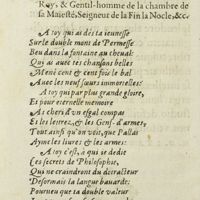 Roy, & Gentil-homme de la chambre de
sa Maiesté, Seigneur de la Fin la Nocle, &c.
A toy qui ai dés ta ieunesse
Sur le double mont de Permesse
Beu dans la fontaine au cheual:
Qui ai auec tes chansons belles
Mené cent & cent fois le bal
Auec les neuf sœurs immortelles:
A toy qui par plus grande gloire,
Et pour eternelle memoire
As cheri d'un esgal compas
Et les lettres, & les Gens-d'armes,
Tout ainsi qu'on voit, que Pallas
Ayme les liures & les armes:
A toy c'est, à qui ie dedie
Ces secrets de Philosophie,
Qui ne craindront du detracteur
Desormais la langue bauarde:
Pourueu que ta double valeur